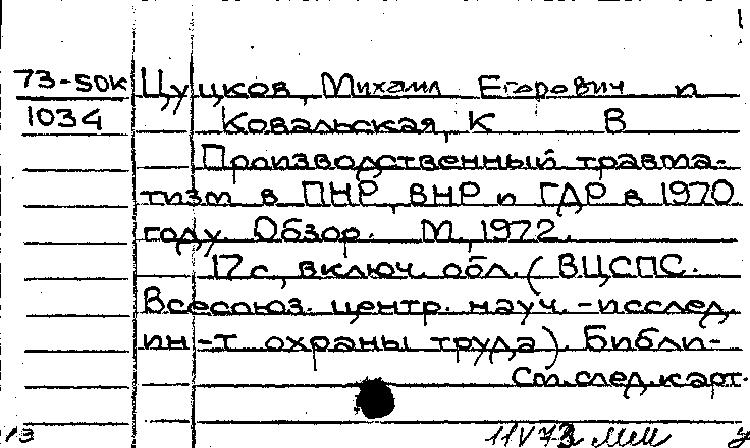 73-50к
1034
Цуцков, Михаил Егорович и
Ковальская, К В
Производственный травма-
тизм в ПНР, ВНР и ГДР в 1970
году. Обзор. М., 1972.
17 с., включ. обл. (ВЦСПС.
Всесоюз. центр. науч.-исслед.
ин-т охраны труда). Библи-
См.след.карт.
11 V 73